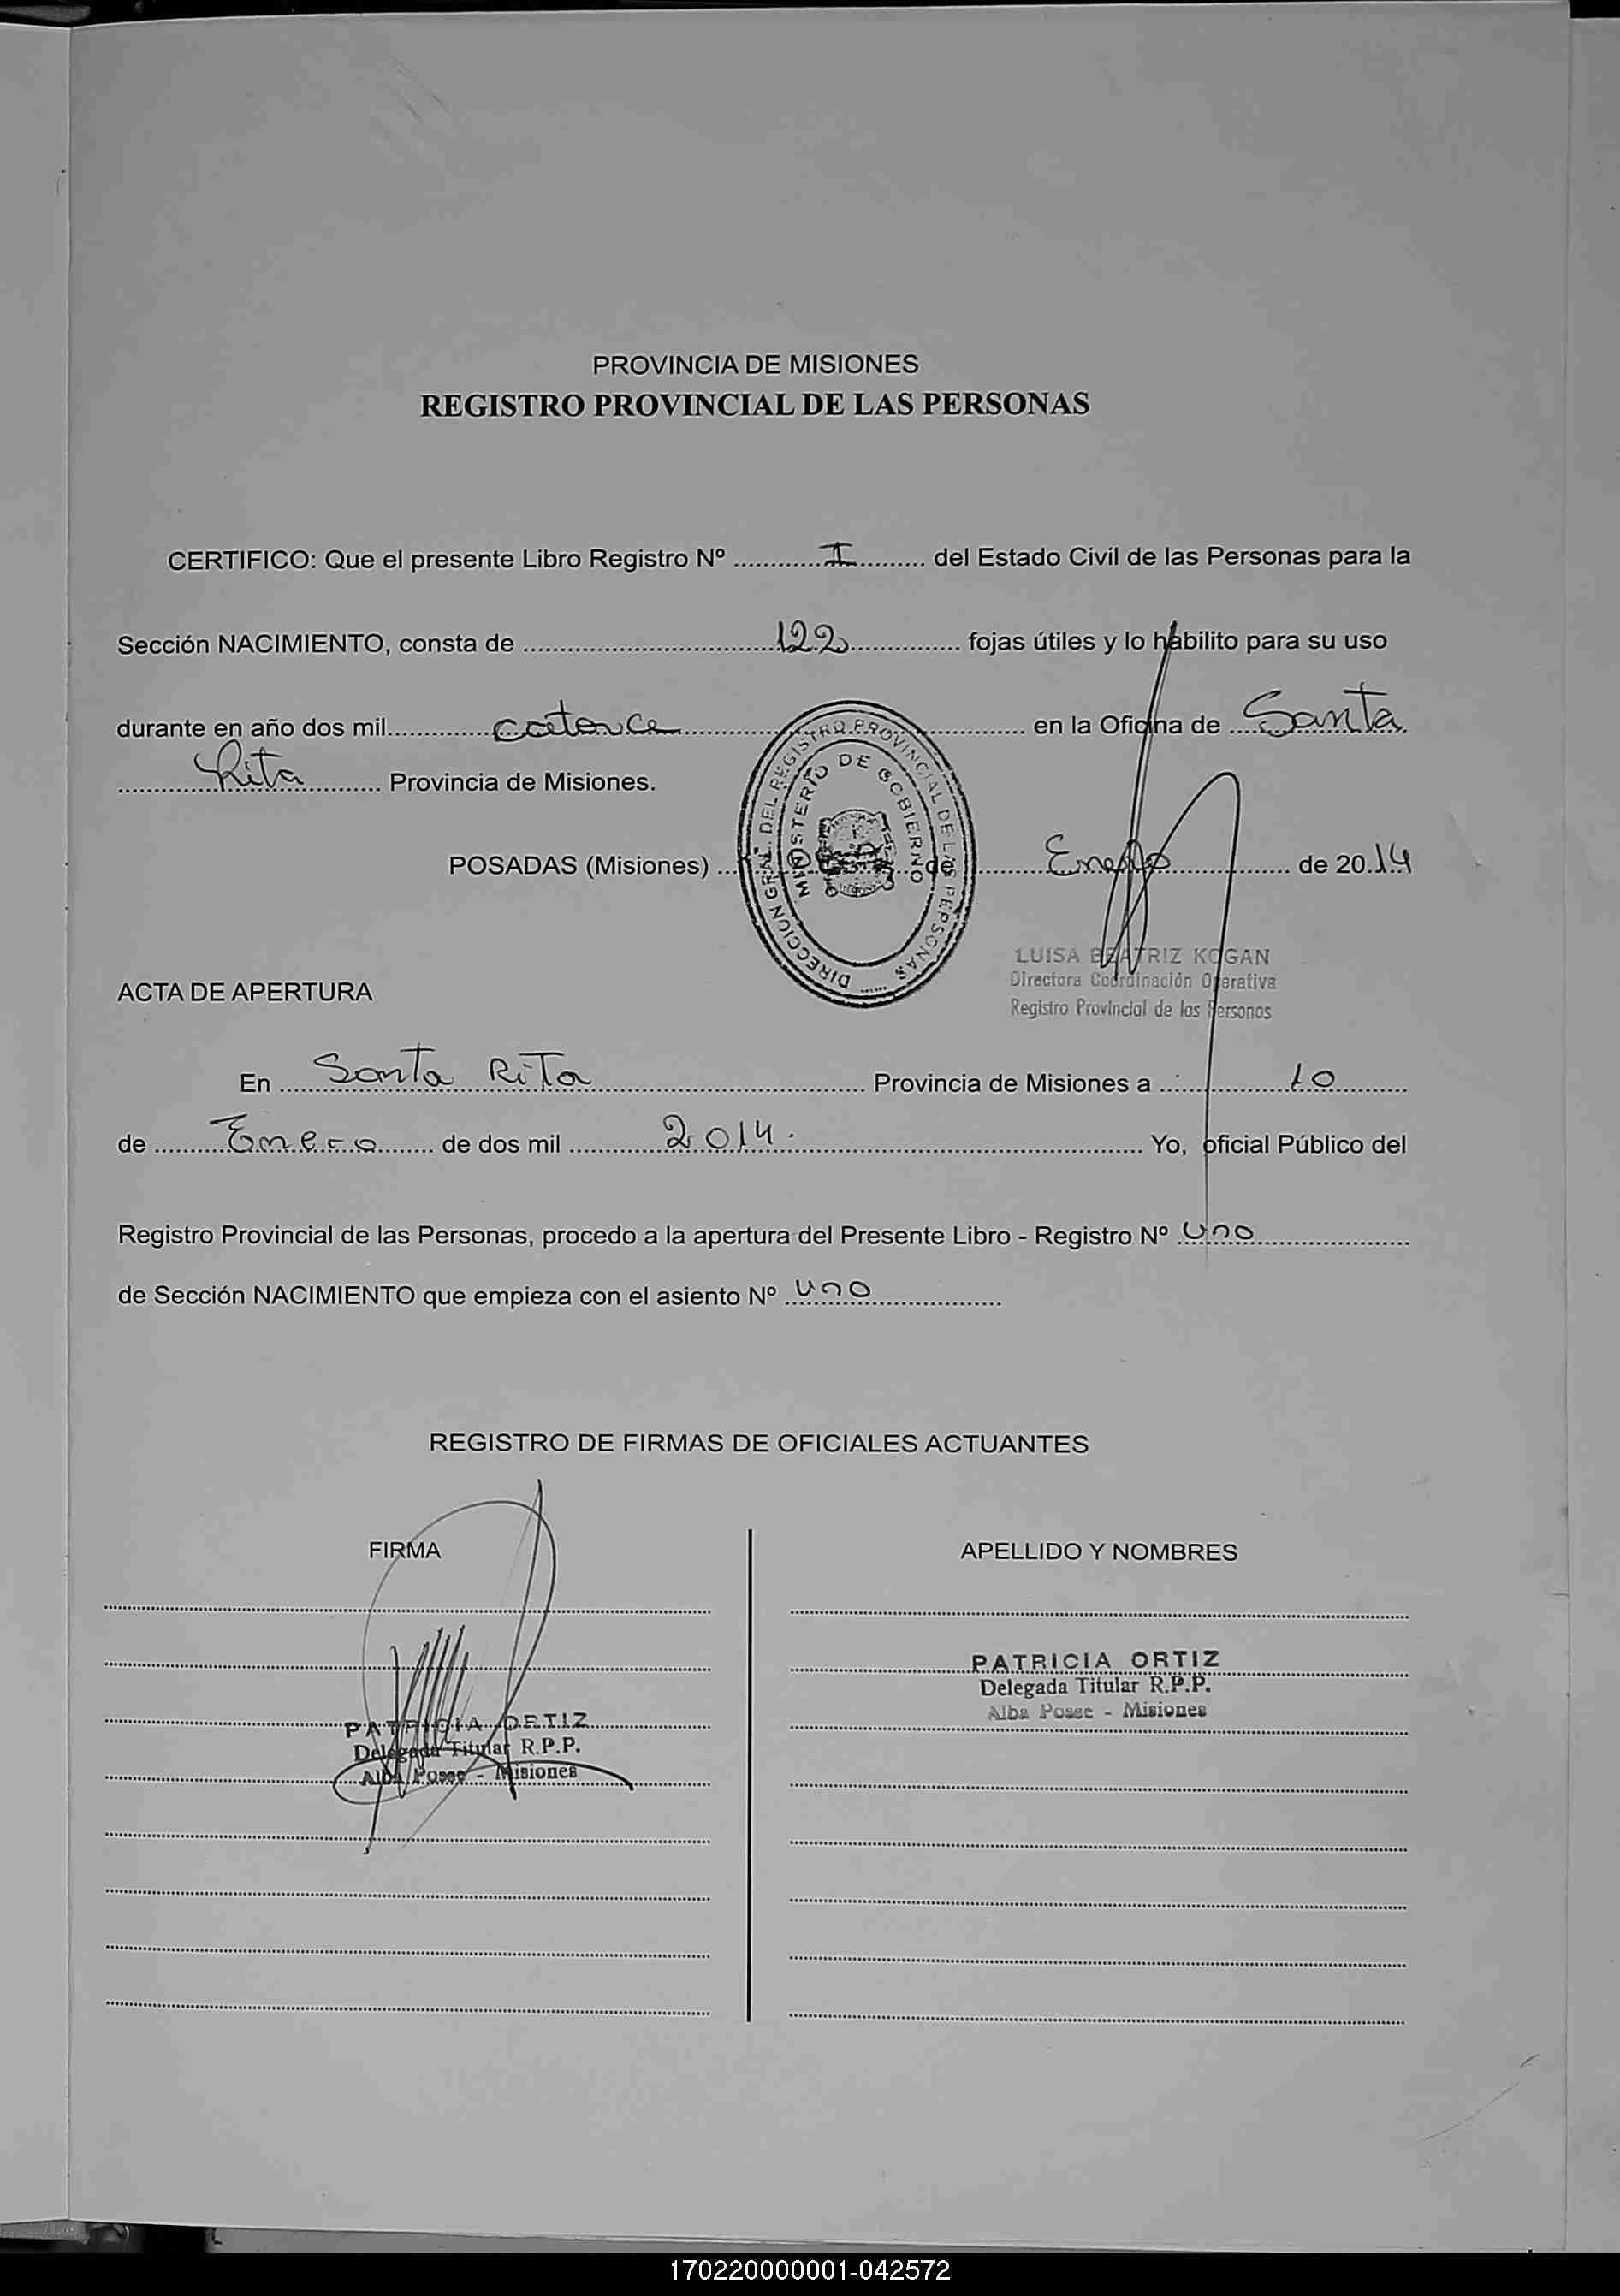 PROVINCIA DE MISIONES
REGISTRO PROVINCIAL DE LAS PERSONAS
CERTIFICO: Que el presente Libro Registro Nº I del Estado Civil de las Personas para la
Sección NACIMIENTO, consta de 122 fojas útiles y lo habilito para su uso
durante en año dos mil catorce en la Oficina de Santa
Rita Provincia de Misiones.
POSADAS (Misiones) de Enero de 2014
DIRECCION GRAL. DEL REGISTRO PROVINCIAL DE LAS PERSONAS
MINISTERIO DE GOBIERNO
LUISA BEATRIZ KOGAN
Directora Coordinación Operativa
Registro Provincial de las Personas
ACTA DE APERTURA
En Santa Rita Provincia de Misiones a 10
de Enero de dos mil 2014. Yo, oficial Público del
Registro Provincial de las Personas, procedo a la apertura del Presente Libro - Registro Nº uno
de Sección NACIMIENTO que empieza con el asiento Nº uno
REGISTRO DE FIRMAS DE OFICIALES ACTUANTES
FIRMA APELLIDO Y NOMBRES
PATRICIA ORTIZ
Delegada Titular R.P.P.
Alba Posse - Misiones
PATRICIA ORTIZ
Delegada Titular R.P.P.
Alba Posse - Misiones
170220000001-042572